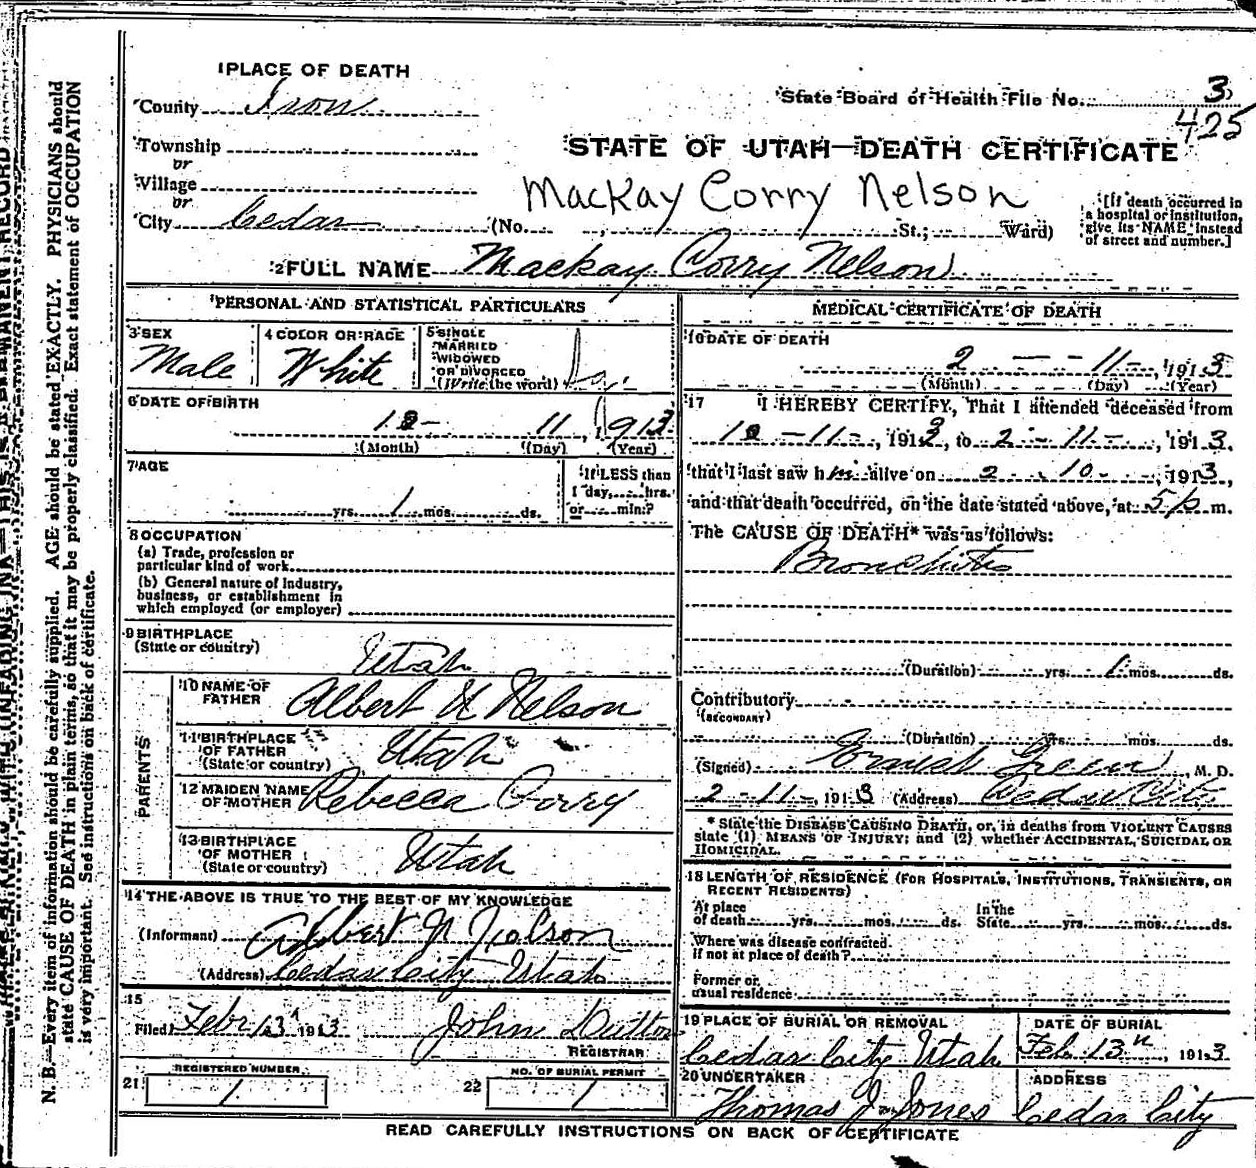 1 PLACE OF DEATH
County Iron
State Board of Health File No. 3
425
Township
or
Village
or
City Cedar (No. St.; Ward)
STATE OF UTAH—DEATH CERTIFICATE
Mackay Corry Nelson
[If death occurred in
a hospital or institution,
give its NAME instead
of street and number.]
2 FULL NAME Mackay Corry Nelson
PERSONAL AND STATISTICAL PARTICULARS
3 SEX
Male
4 COLOR OR RACE
White
5 SINGLE
MARRIED
WIDOWED
OR DIVORCED
(Write the word)
6 DATE OF BIRTH
11, 1913
(Month) (Day) (Year)
7 AGE
yrs. 1 mos. ds.
If LESS than
1 day, hrs.
or min.?
8 OCCUPATION
(a) Trade, profession or
particular kind of work
(b) General nature of Industry,
business, or establishment in
which employed (or employer)
9 BIRTHPLACE
(State or country)
Utah
PARENTS
10 NAME OF
FATHER
Albert N Nelson
11 BIRTHPLACE
OF FATHER
(State or country)
Utah
12 MAIDEN NAME
OF MOTHER
Rebecca Corry
13 BIRTHPLACE
OF MOTHER
(State or country)
Utah
14 THE ABOVE IS TRUE TO THE BEST OF MY KNOWLEDGE
(Informant) Albert N Nelson
(Address) Cedar City Utah
15
Filed Febr 13 1913 John Dutton
REGISTRAR
REGISTERED NUMBER
21 1
NO. OF BURIAL PERMIT
22 1
MEDICAL CERTIFICATE OF DEATH
16 DATE OF DEATH
2 - - 11 -, 1913
(Month) (Day) (Year)
17 I HEREBY CERTIFY, That I attended deceased from
-11-, 191 , to 2 - 11 -, 1913.
that I last saw him alive on 2 . 10 -, 1913,
and that death occurred, on the date stated above, at 5 p m.
The CAUSE OF DEATH* was as follows:
Bronchitis
(Duration) yrs. 1 mos. ds.
Contributory
(SECONDARY)
(Duration) yrs. mos. ds.
(Signed) Green, M. D.
2 - 11 -, 1913 (Address) Cedar City
* State the DISEASE CAUSING DEATH, or, in deaths from VIOLENT CAUSES
state (1) MEANS OF INJURY; and (2) whether ACCIDENTAL, SUICIDAL OR
HOMICIDAL.
18 LENGTH OF RESIDENCE (FOR HOSPITALS, INSTITUTIONS, TRANSIENTS, OR
RECENT RESIDENTS)
At place
of death yrs. mos. ds.
In the
State yrs. mos. ds.
Where was disease contracted
if not at place of death?
Former or
usual residence
19 PLACE OF BURIAL OR REMOVAL
Cedar City Utah
DATE OF BURIAL
Feb. 13th, 1913
20 UNDERTAKER
Thomas J Jones
ADDRESS
Cedar City
READ CAREFULLY INSTRUCTIONS ON BACK OF CERTIFICATE
WRITE PLAINLY, WITH UNFADING INK—THIS IS A PERMANENT RECORD
N. B.—Every item of information should be carefully supplied. AGE should be stated EXACTLY. PHYSICIANS should
state CAUSE OF DEATH in plain terms, so that it may be properly classified. Exact statement of OCCUPATION
is very important. See instructions on back of certificate.